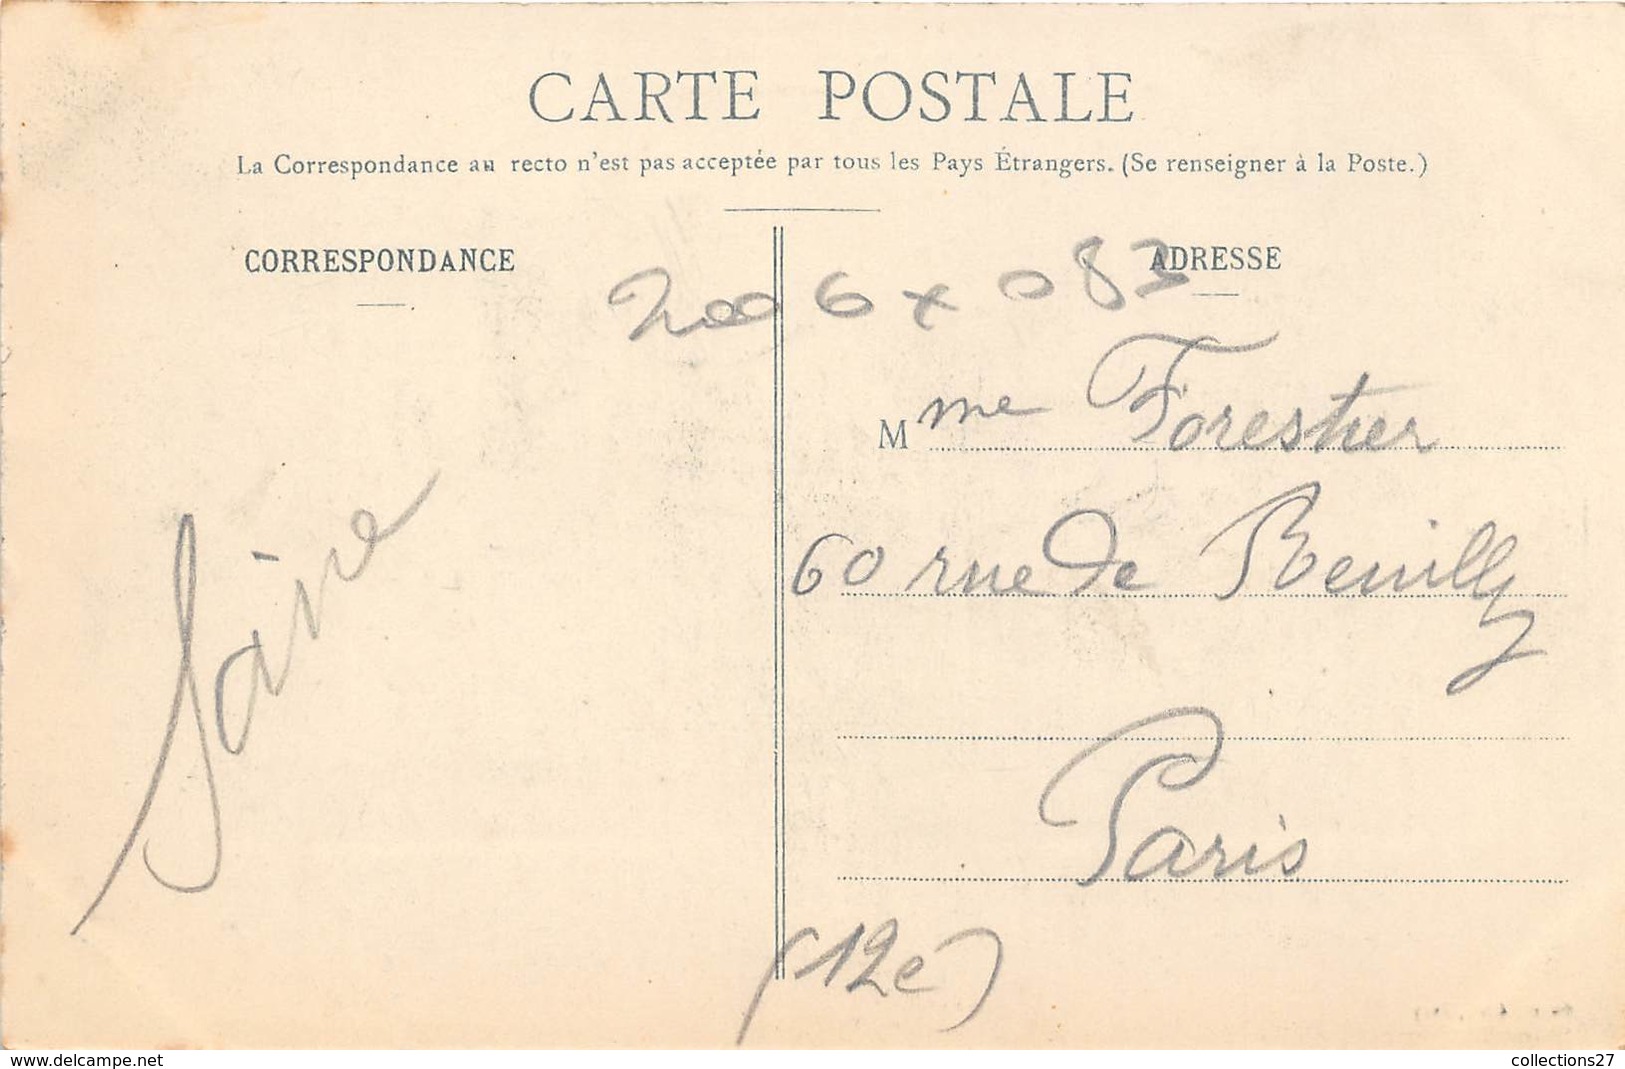 CARTE POSTALE
La Correspondance au recto n'est pas acceptée par tous les Pays Étrangers. (Se renseigner à la Poste.)
CORRESPONDANCE
ADRESSE
Mme Forestier
60 rue de Reuilly
Paris
(12e)
www.delcampe.net
collections27